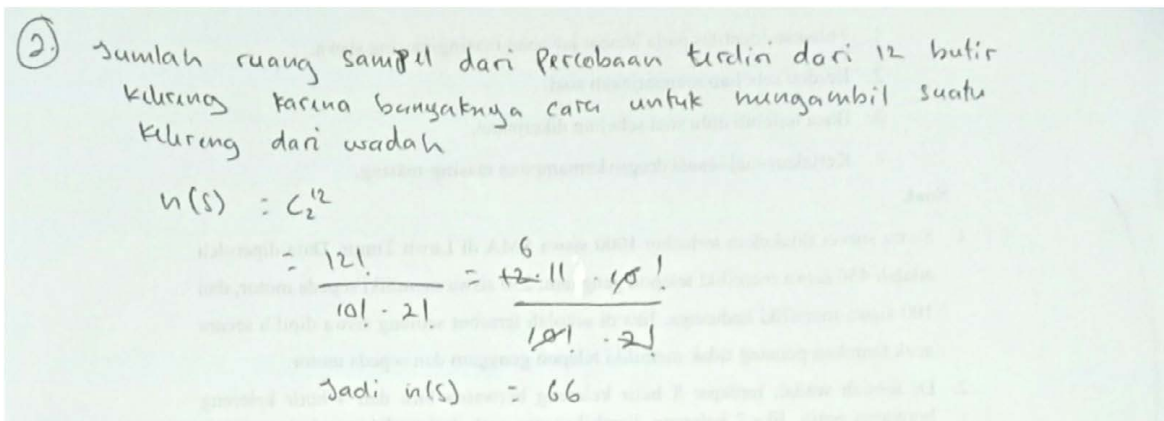 2. Jumlah ruang sampel dari percobaan terdiri dari 12 butir
kelereng karena banyaknya cara untuk mengambil suatu
kelereng dari wadah
n(S) : C₂¹²
= 12! / 10! · 2! = 6 12 · 11 · 10! / 10! · 2!
Jadi n(S) = 66